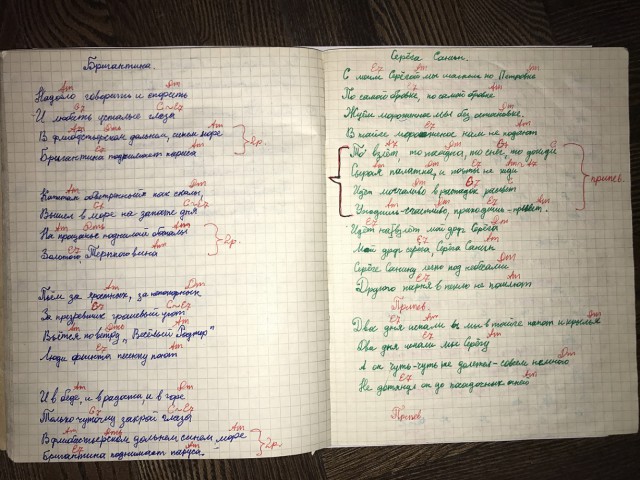 Бригантина.
Am Dm
Надоело говорить и спорить
G7 C~E7
И любить усталые глаза
A7 Dm6 Am
В флибустьерском дальнем, синем море
E7 Am
Бригантина поднимает паруса
2р.
Am Dm
Капитан обветренный как скалы,
G7 C~E7
Вышел в море не дня
Am Dm6 Am
На прощанье поднимай бокалы
E7 Am
Золотого, Терпкого вина
2р.
Am Dm
Пьём за яростных, за непохожих
G7 C~E7
За презревших грошевый уют
Am Dm6 Am
Вьётся по ветру "Весёлый Роджер"
E7 Am
Люди Флинта песенку поют
Am Dm
И в беде, и в радости, и в горе
G7 C~E7
Только чуточку закрой глаза
Am Dm6 Am
В флибустьерском дальнем, синем, море
E7 Am
Бригантина поднимает паруса.
2р.
Серёга Санин.
E7 Am Dm
С моим Серёгой мы шагаем по Петровке
E7 Am
По самой бровке, по самой бровке
Dm
Жуём мороженое мы без остановки
E7 Am
В тайге мороженое нам не подают
A7 Dm G7 C
То взлёт, то посадка, то снег, то дожди
Am Dm E7 Am~A7
Сырая палатка, и почты не жди
Dm G7
Идёт молчаливо в распадок рассвет
Am Dm E7 Am
Уходишь-счастливо, приходишь-привет.
припев.
E7 Am Dm
Идёт на взлёт мой друг Серёга
E7 Am
Мой друг Серёга, Серёга Санин
Dm
Серёге Санину легко под небесами
E7 Am
Другого парня в пекло не пошлют
Припев.
E7 Am Dm
Два дня искали мы в тайге капот и крылья
E7 Am
Два дня искали мы Серёгу
Dm
А он чуть-чуть не долетел-совсем немного
E7 Am
Не дотянул он до посадочных огней
Припев.